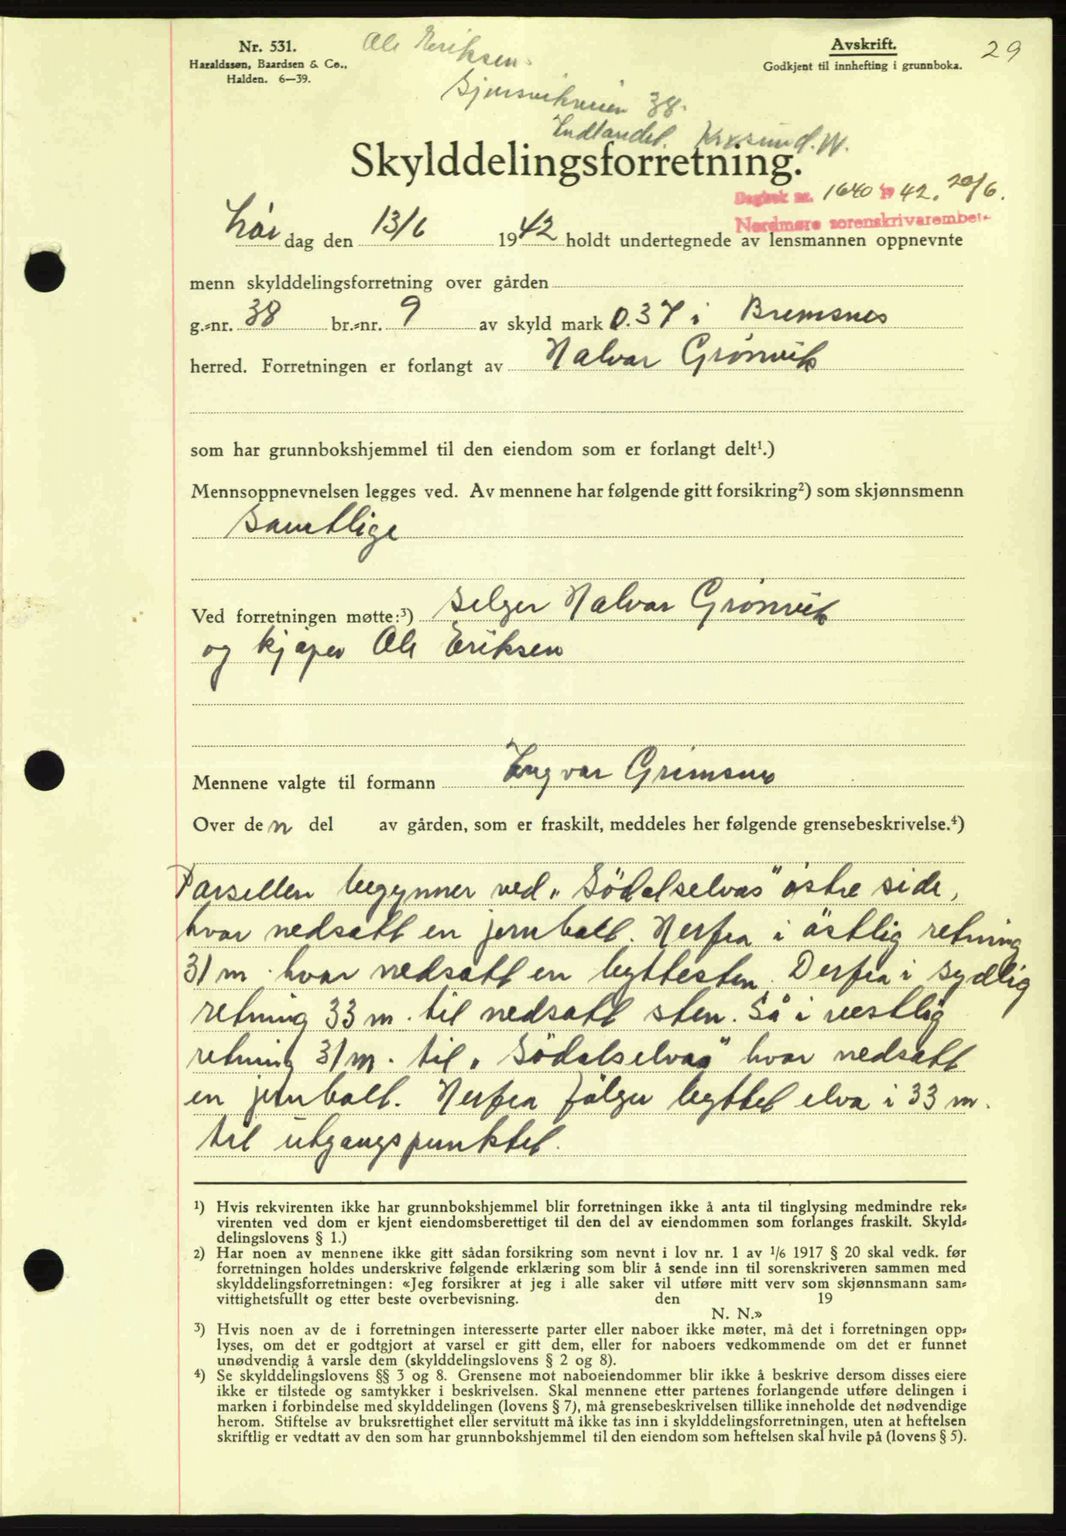 Nr. 531.
Haraldssøn, Baardsen & Co.,
Halden. 6—39.
Ole Eriksen.
38.
Indlandet. Kr.sund. N.
Avskrift.
Godkjent til innhefting i grunnboka.
29
Skylddelingsforretning.
Dagbok nr. 1640 19 42. 20/6.
Nordmøre sorenskrivarembete
Lør dag den 13/6 1942 holdt undertegnede av lensmannen oppnevnte
menn skylddelingsforretning over gården
g.-nr. 38 br.-nr. 9 av skyld mark 0.37 i Bremsnes
herred. Forretningen er forlangt av Halvar Grønvik
som har grunnbokshjemmel til den eiendom som er forlangt delt¹.)
Mennsoppnevnelsen legges ved. Av mennene har følgende gitt forsikring²) som skjønnsmenn
Samtlige
Ved forretningen møtte:³) Selger Halvar Grønvik
og kjøper Ole Eriksen
Mennene valgte til formann Yngvar Grimsmo
Over den del av gården, som er fraskilt, meddeles her følgende grensebeskrivelse.⁴)
Parsellen begynner ved „Södalselvas" østre side,
hvor nedsatt en jernbolt. Herfra i östlig retning
31 m. hvor nedsatt en byttesten. Derfra i sydlig
retning 33 m. til nedsatt sten. Så i vestlig
retning 31 m. til „Södalselvas" hvor nedsatt
en jernbolt. Herfra fölger byttet elva i 33 m.
til utgangspunktet.
¹) Hvis rekvirenten ikke har grunnbokshjemmel blir forretningen ikke å anta til tinglysing medmindre rek-
virenten ved dom er kjent eiendomsberettiget til den del av eiendommen som forlanges fraskilt. Skyld-
delingslovens § 1.)
²) Har noen av mennene ikke gitt sådan forsikring som nevnt i lov nr. 1 av 1/6 1917 § 20 skal vedk. før
forretningen holdes underskrive følgende erklæring som blir å sende inn til sorenskriveren sammen med
skylddelingsforretningen: «Jeg forsikrer at jeg i alle saker vil utføre mitt verv som skjønnsmann sam-
vittighetsfullt og etter beste overbevisning. den 19
N. N.»
³) Hvis noen av de i forretningen interesserte parter eller naboer ikke møter, må det i forretningen opp-
lyses, om det er godtgjort at varsel er gitt dem, eller for naboers vedkommende om det er funnet
unødvendig å varsle dem (skylddelingslovens § 2 og 8).
⁴) Se skylddelingslovens §§ 3 og 8. Grensene mot naboeiendommer blir ikke å beskrive dersom disses eiere
ikke er tilstede og samtykker i beskrivelsen. Skal mennene etter partenes forlangende utføre delingen i
marken i forbindelse med skylddelingen (lovens § 7), må grensebeskrivelsen tillike inneholde det nødvendige
herom. Stiftelse av bruksrettighet eller servitutt må ikke tas inn i skylddelingsforretningen, uten at heftelsen
skriftlig er vedtatt av den som har grunnbokshjemmel til den eiendom som heftelsen skal hvile på (lovens § 5).